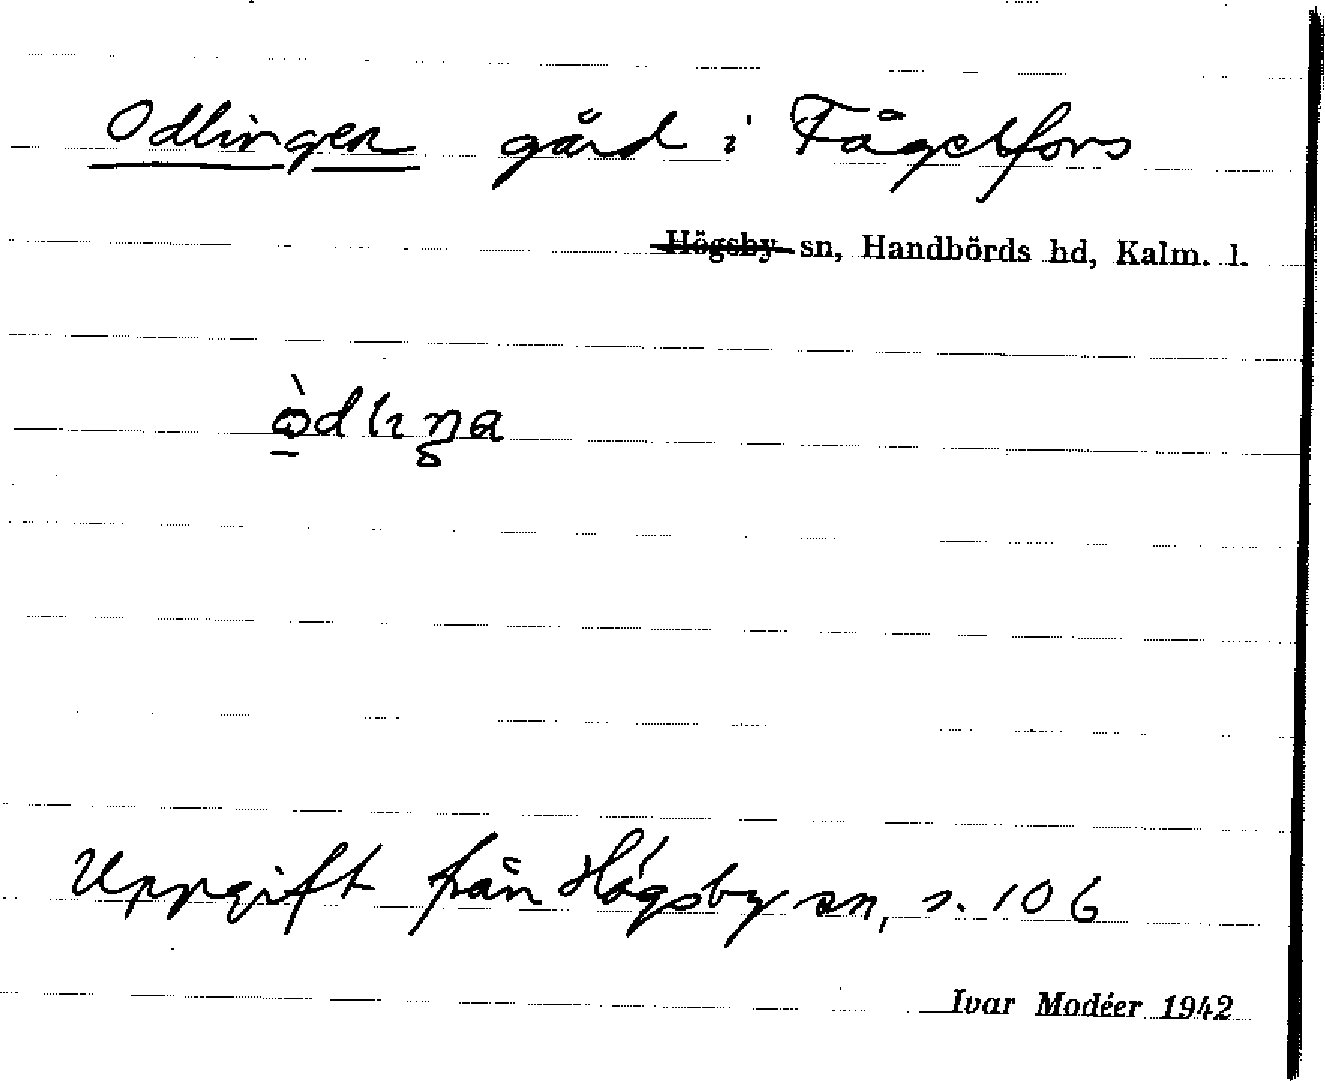 Odlingen gård i Fågelfors
Högsby sn, Handbörds hd, Kalm. l.
Uppgift från Högsby sn, s. 106
Ivar Modéer 1942